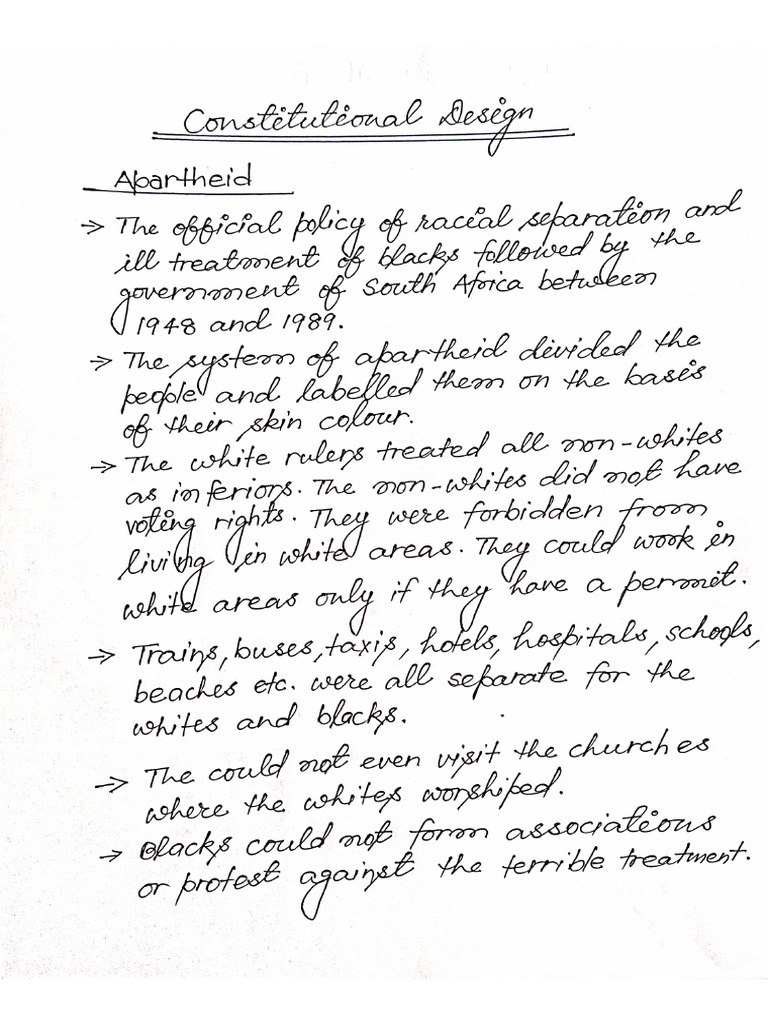 Constitutional Design
Apartheid
→ The official policy of racial separation and
ill treatment of blacks followed by the
government of South Africa between
1948 and 1989.
→ The system of apartheid divided the
people and labelled them on the basis
of their skin colour.
→ The white rulers treated all non-whites
as inferiors. The non-whites did not have
voting rights. They were forbidden from
living in white areas. They could work in
white areas only if they have a permit.
→ Trains, buses, taxis, hotels, hospitals, schools,
beaches etc. were all separate for the
whites and blacks.
→ The could not even visit the churches
where the whites worshiped.
→ Blacks could not form associations
or protest against the terrible treatment.